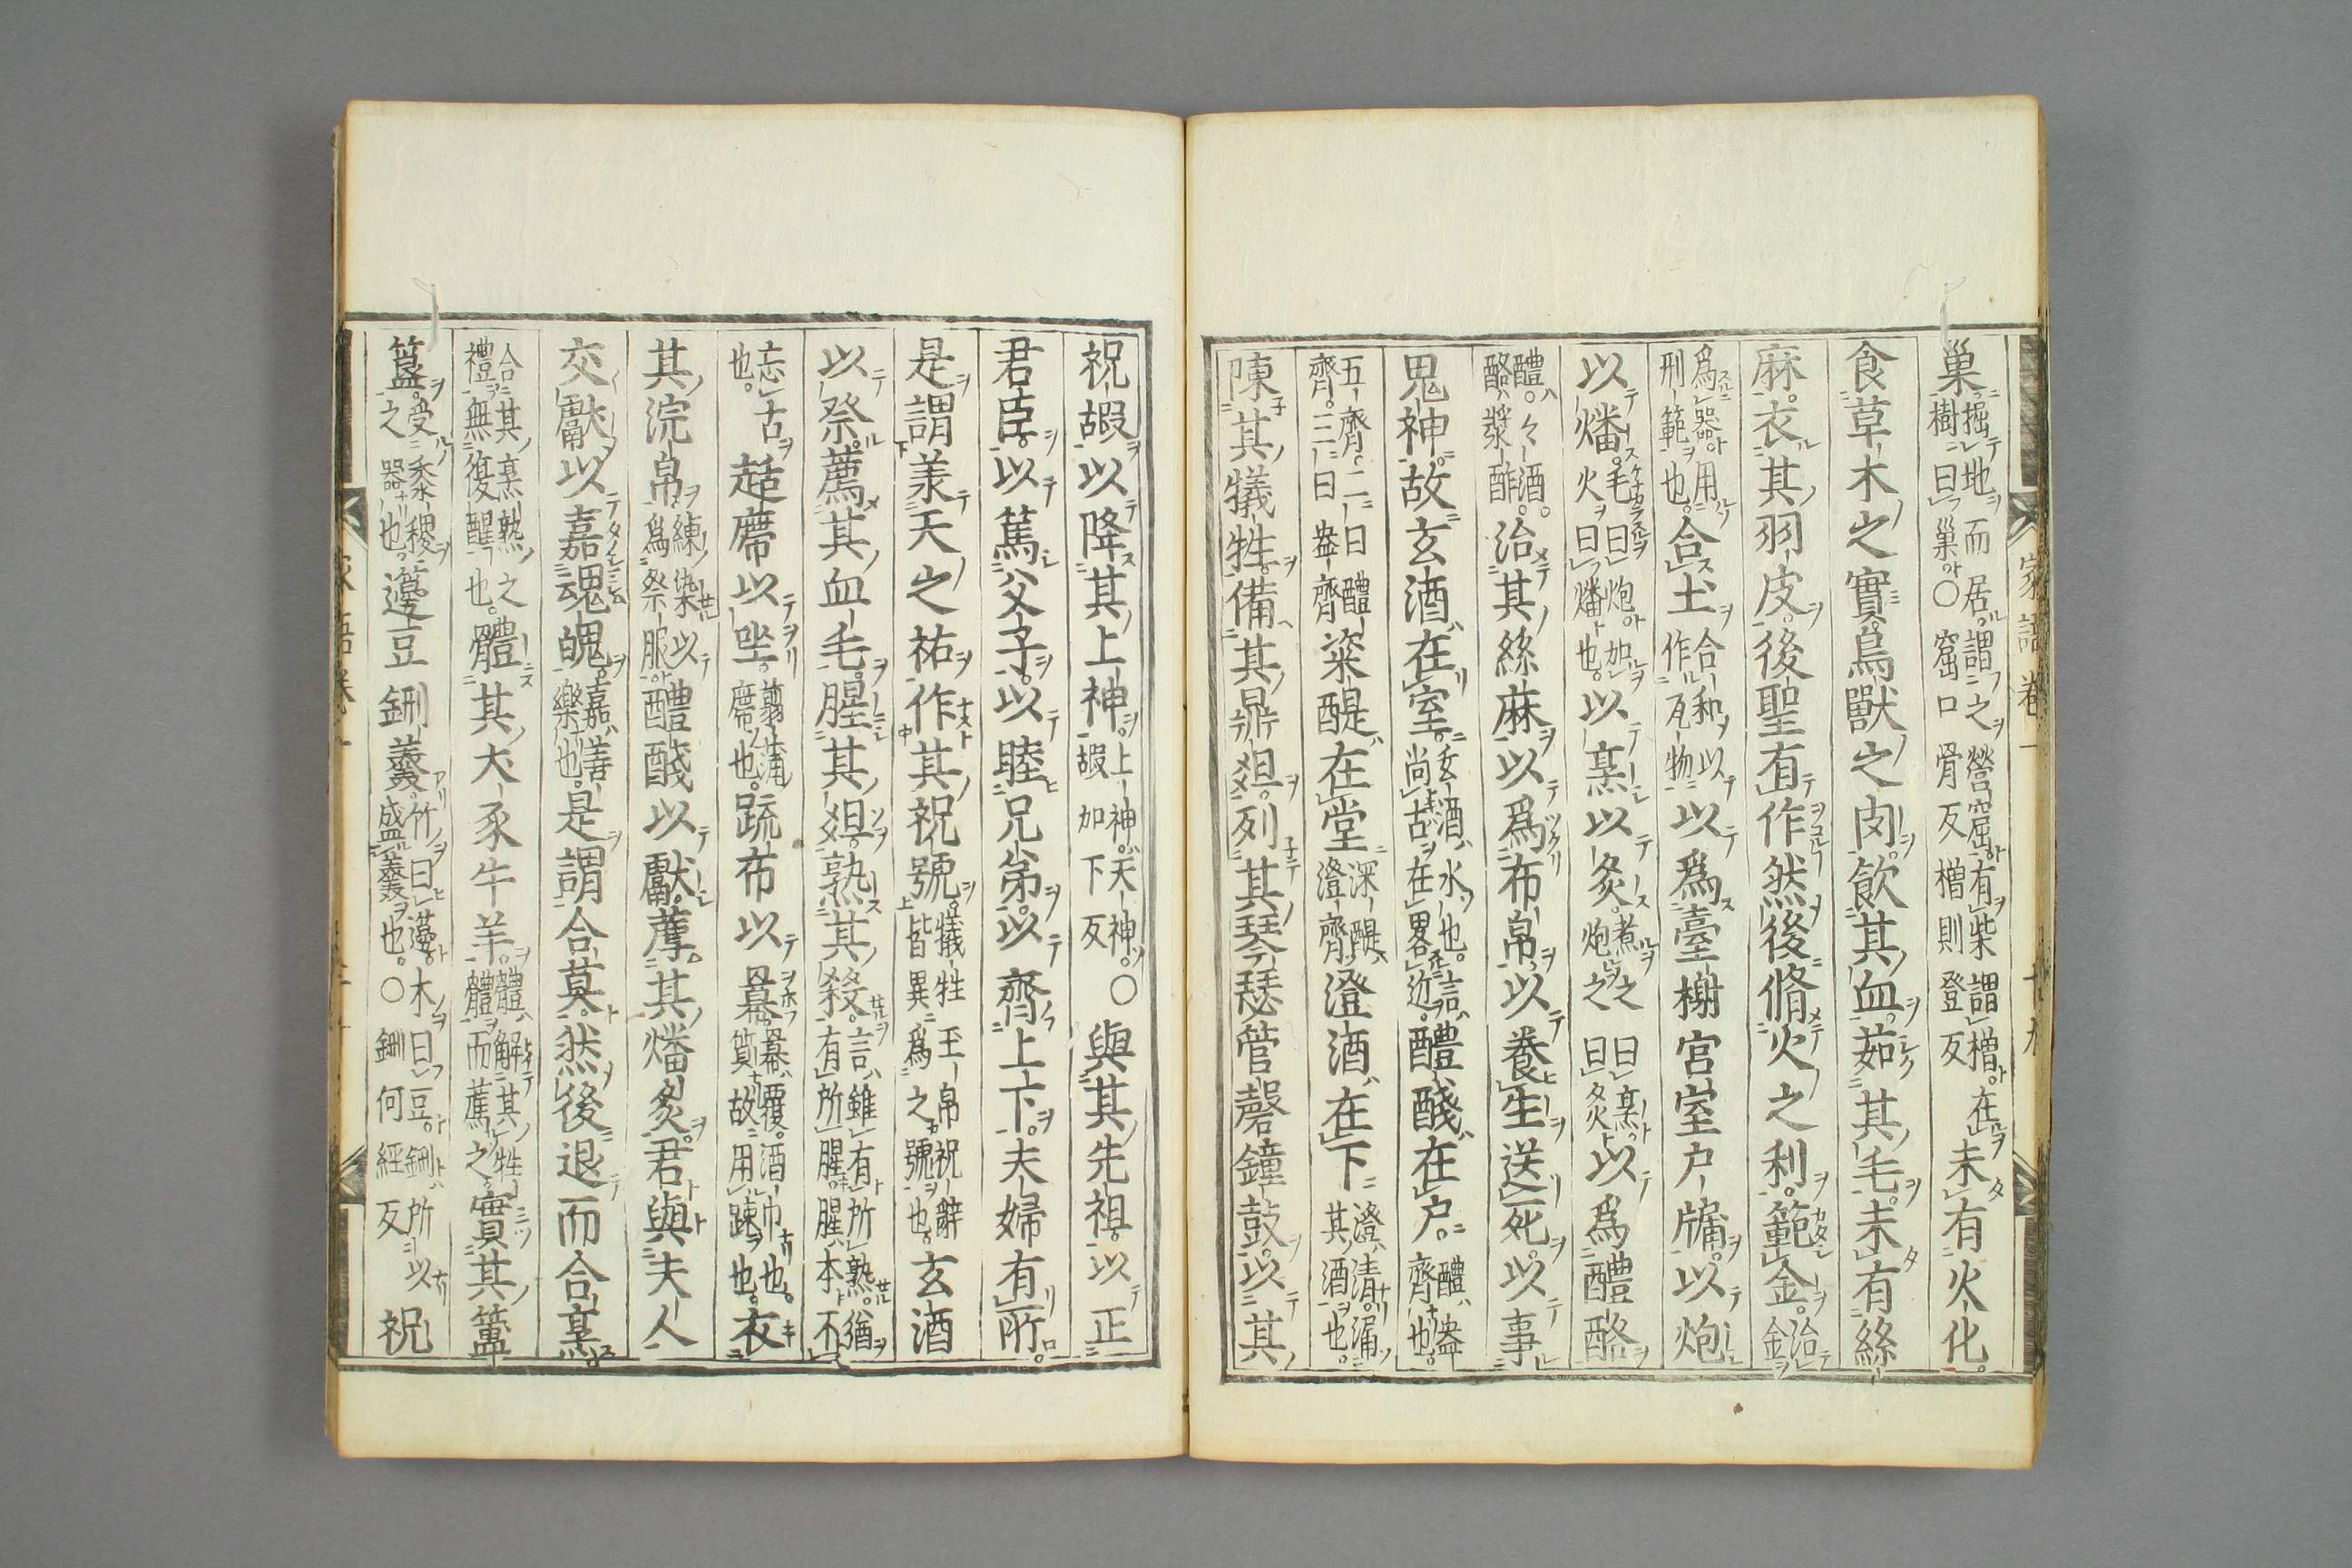 巢掘地而居謂之營窟有柴謂橧在樹曰巢○窟口骨反橧則登反未有火化
食草木之實鳥獸之肉飲其血茹其毛未有絲
麻衣其羽皮後聖有作然後脩火之利範金冶金
爲器用刑範也合土合和以作瓦物以爲臺榭宮室户牖以炮
以燔毛曰炮加火曰燔也以烹以炙煮之曰烹炮之曰炙以爲醴酪
醴醴酒酪漿酢治其絲麻以爲布帛以養生送死以事
鬼神故玄酒在室玄酒水也言尚古在畧近醴醆在户醴盎齊也
五齊二曰醴齊三曰盎齊粢醍在堂澄酒在下澄清漏其酒也
陳其犧牲備其鼎俎列其琴瑟管磬鐘鼓以其
祝嘏以降其上神上神天神嘏加下反○與其先祖以正
君臣以篤父子以睦兄弟以齊上下夫婦有所
是謂羕天之祐作其祝號犧牲玉帛祝辭皆異爲之號也玄酒
以祭薦其血毛腥其俎熟其殽言雖有所熟猶有所腥腥本不
忘古也越席以坐翦蒲席也疏布以羃羃覆酒巾也質故用疎也衣
其浣帛練染以爲祭服醴醆以獻薦其燔炙君與夫人
交獻以嘉魂魄嘉善樂也是謂合莫然後退而合烹
合其烹熟之禮無復腥也體其犬豕牛羊體解其牲體而薦之實其簠
簋受黍稷之器也籩豆鉶羹竹曰籩木曰豆鉶所以盛羹也○鉶何經反祝